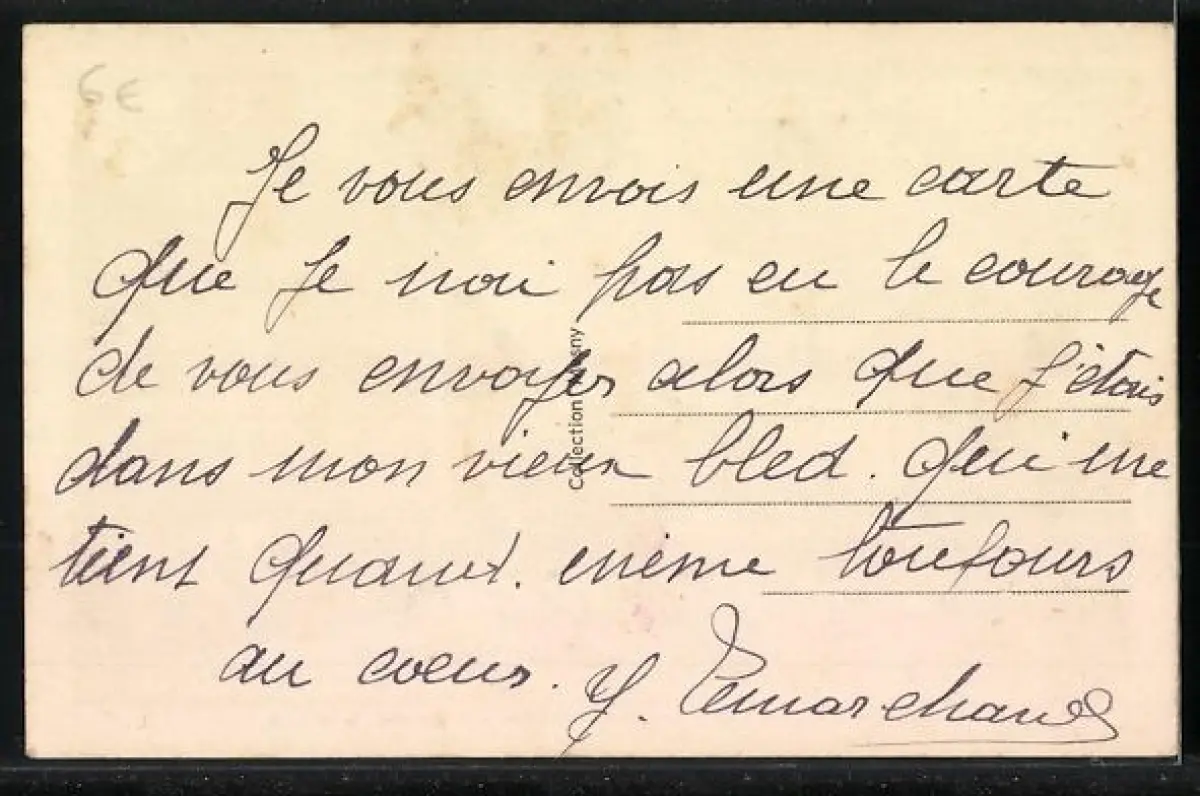 6 €
Je vous envois une carte
que je n'ai pas eu le courage
de vous envoyer alors que j'étais
dans mon vieux bled. qui me
tient quand. même toujours
au coeur. Y. Lemarchand
Collection